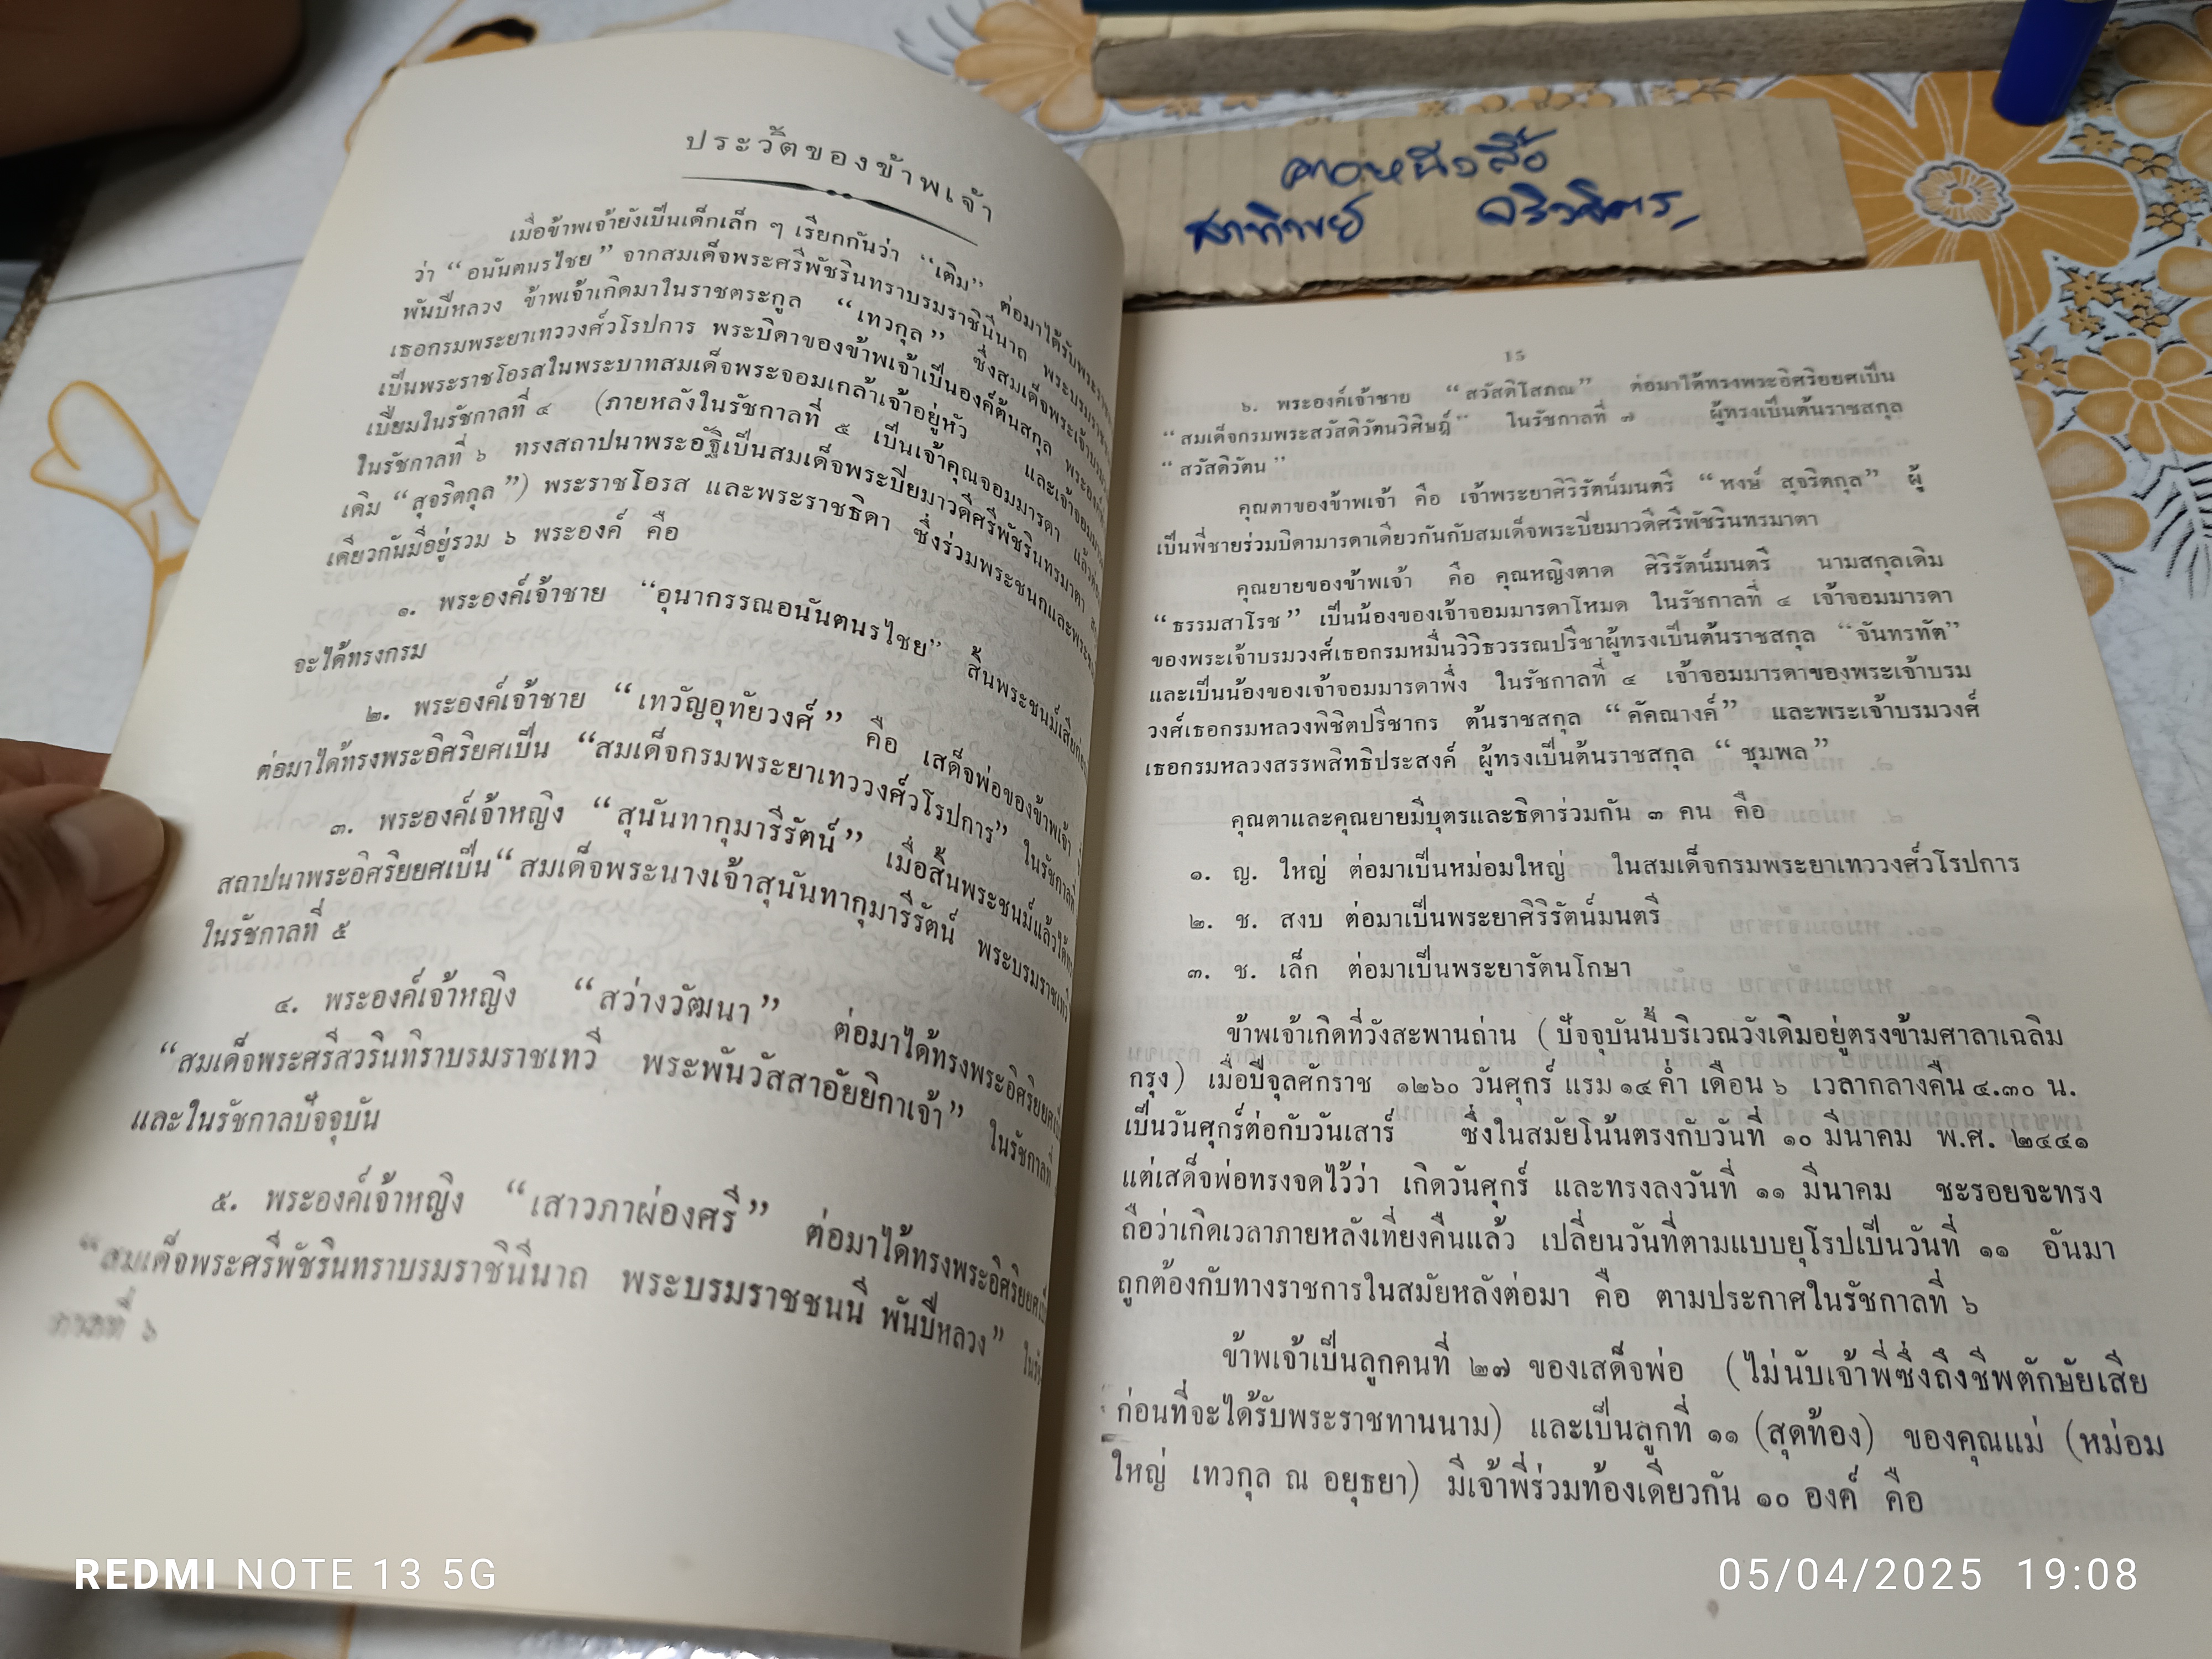 ประวัติของข้าพเจ้า
เมื่อข้าพเจ้ายังเป็นเด็กเล็ก ๆ เรียกกันว่า “เติม” ต่อมาได้รับพระราช
ว่า “อนันตนรไชย” จากสมเด็จพระศรีพัชรินทราบรมราชินีนาถ พระบรมราช
พันปีหลวง ข้าพเจ้าเกิดมาในราชตระกูล “เทวกุล” ซึ่งสมเด็จพระเจ้าบรมวงศ์
เธอกรมพระยาเทววงศ์วโรปการ พระบิดาของข้าพเจ้าเป็นองค์ต้นสกุล
เป็นพระราชโอรสในพระบาทสมเด็จพระจอมเกล้าเจ้าอยู่หัว และเจ้าจอมมารดา
เปี่ยมในรัชกาลที่ ๔ (ภายหลังในรัชกาลที่ ๕ เป็นเจ้าคุณจอมมารดา
ในรัชกาลที่ ๖ ทรงสถาปนาพระอัฐิเป็นสมเด็จพระปิยมาวดีศรีพัชรินทรมาตา
เดิม “สุจริตกุล”) พระราชโอรส และพระราชธิดา ซึ่งร่วมพระชนกและพระชน
เดียวกันมีอยู่รวม ๖ พระองค์ คือ
๑. พระองค์เจ้าชาย “อุนากรรณอนันตนรไชย” สิ้นพระชนม์เสียก่อน
จะได้ทรงกรม
๒. พระองค์เจ้าชาย “เทวัญอุทัยวงศ์” คือ เสด็จพ่อของข้าพเจ้า
ต่อมาได้ทรงพระอิศริยศเป็น “สมเด็จกรมพระยาเทววงศ์วโรปการ” ในรัชกาลที่
๓. พระองค์เจ้าหญิง “สุนันทากุมารีรัตน์” เมื่อสิ้นพระชนม์แล้วได้ทรง
สถาปนาพระอิศริยยศเป็น “สมเด็จพระนางเจ้าสุนันทากุมารีรัตน์ พระบรมราชเทวี
ในรัชกาลที่ ๕
๔. พระองค์เจ้าหญิง “สว่างวัฒนา” ต่อมาได้ทรงพระอิศริยยศเป็น
“สมเด็จพระศรีสวรินทิราบรมราชเทวี พระพันวัสสาอัยยิกาเจ้า” ในรัชกาลที่
และในรัชกาลปัจจุบัน
๕. พระองค์เจ้าหญิง “เสาวภาผ่องศรี” ต่อมาได้ทรงพระอิศริยยศเป็น
“สมเด็จพระศรีพัชรินทราบรมราชินีนาถ พระบรมราชชนนี พันปีหลวง” ในรัช
กาลที่ ๖
15
๖. พระองค์เจ้าชาย “สวัสดิโสภณ” ต่อมาได้ทรงพระอิศริยยศเป็น
“สมเด็จกรมพระสวัสดิวัตนวิศิษฎ์” ในรัชกาลที่ ๗ ผู้ทรงเป็นต้นราชสกุล
“สวัสดิวัตน”
คุณตาของข้าพเจ้า คือ เจ้าพระยาศิริรัตน์มนตรี “หงษ์ สุจริตกุล” ผู้
เป็นพี่ชายร่วมบิดามารดาเดียวกันกับสมเด็จพระปิยมาวดีศรีพัชรินทรมาตา
คุณยายของข้าพเจ้า คือ คุณหญิงตาด ศิริรัตน์มนตรี นามสกุลเดิม
“ธรรมสาโรช” เป็นน้องของเจ้าจอมมารดาโหมด ในรัชกาลที่ ๔ เจ้าจอมมารดา
ของพระเจ้าบรมวงศ์เธอกรมหมื่นวิวิธวรรณปรีชาผู้ทรงเป็นต้นราชสกุล “จันทรทัต”
และเป็นน้องของเจ้าจอมมารดาพึ่ง ในรัชกาลที่ ๔ เจ้าจอมมารดาของพระเจ้าบรม
วงศ์เธอกรมหลวงพิชิตปรีชากร ต้นราชสกุล “คัคณางค์” และพระเจ้าบรมวงศ์
เธอกรมหลวงสรรพสิทธิประสงค์ ผู้ทรงเป็นต้นราชสกุล “ชุมพล”
คุณตาและคุณยายมีบุตรและธิดาร่วมกัน ๓ คน คือ
๑. ญ. ใหญ่ ต่อมาเป็นหม่อมใหญ่ ในสมเด็จกรมพระยาเทววงศ์วโรปการ
๒. ช. สงบ ต่อมาเป็นพระยาศิริรัตน์มนตรี
๓. ช. เล็ก ต่อมาเป็นพระยารัตนโกษา
ข้าพเจ้าเกิดที่วังสะพานถ่าน (ปัจจุบันนี้บริเวณวังเดิมอยู่ตรงข้ามศาลาเฉลิม
กรุง) เมื่อปีจุลศักราช ๑๒๖๐ วันศุกร์ แรม ๑๔ ค่ำ เดือน ๖ เวลากลางคืน ๔.๓๐ น.
เป็นวันศุกร์ต่อกับวันเสาร์ ซึ่งในสมัยโน้นตรงกับวันที่ ๑๐ มีนาคม พ.ศ. ๒๔๔๑
แต่เสด็จพ่อทรงจดไว้ว่า เกิดวันศุกร์ และทรงลงวันที่ ๑๑ มีนาคม ชะรอยจะทรง
ถือว่าเกิดเวลาภายหลังเที่ยงคืนแล้ว เปลี่ยนวันที่ตามแบบยุโรปเป็นวันที่ ๑๑ อันมา
ถูกต้องกับทางราชการในสมัยหลังต่อมา คือ ตามประกาศในรัชกาลที่ ๖
ข้าพเจ้าเป็นลูกคนที่ ๒๗ ของเสด็จพ่อ (ไม่นับเจ้าพี่ซึ่งถึงชีพตักษัยเสีย
ก่อนที่จะได้รับพระราชทานนาม) และเป็นลูกที่ ๑๑ (สุดท้อง) ของคุณแม่ (หม่อม
ใหญ่ เทวกุล ณ อยุธยา) มีเจ้าพี่ร่วมท้องเดียวกัน ๑๐ องค์ คือ
REDMI NOTE 13 5G
05/04/2025 19:08